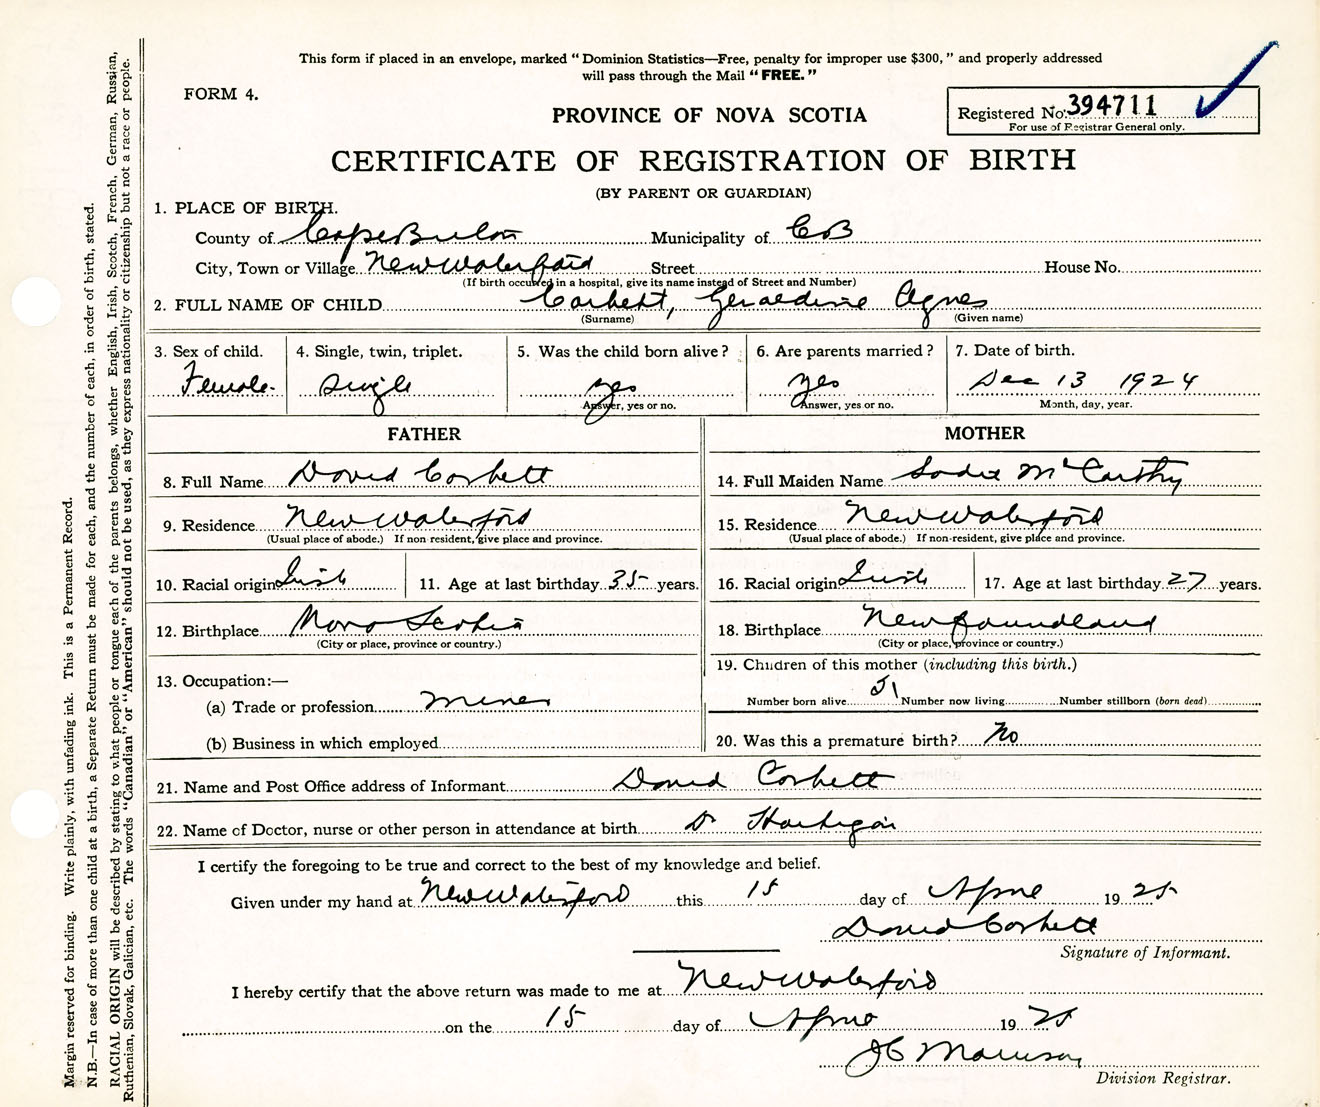 This form if placed in an envelope, marked "Dominion Statistics—Free, penalty for improper use $300," and properly addressed
will pass through the Mail "FREE."
FORM 4.
PROVINCE OF NOVA SCOTIA
Registered No. 394711
For use of Registrar General only.
CERTIFICATE OF REGISTRATION OF BIRTH
(BY PARENT OR GUARDIAN)
1. PLACE OF BIRTH.
County of Cape Breton Municipality of CB
City, Town or Village New Waterford Street House No.
(If birth occured in a hospital, give its name instead of Street and Number)
2. FULL NAME OF CHILD Corbett, Geraldine Agnes
(Surname) (Given name)
3. Sex of child. 4. Single, twin, triplet. 5. Was the child born alive? 6. Are parents married? 7. Date of birth.
Female Single yes yes Dec 13 1924
Answer, yes or no. Answer, yes or no. Month, day, year.
FATHER MOTHER
8. Full Name David Corbett 14. Full Maiden Name Sadie McCarthy
9. Residence New Waterford 15. Residence New Waterford
(Usual place of abode.) If non-resident, give place and province. (Usual place of abode.) If non-resident, give place and province.
10. Racial origin Irish 11. Age at last birthday 35 years. 16. Racial origin Irish 17. Age at last birthday 27 years.
12. Birthplace Nova Scotia 18. Birthplace Newfoundland
(City or place, province or country.) (City or place, province or country.)
19. Children of this mother (including this birth.)
13. Occupation:—
(a) Trade or profession miner Number born alive Number now living Number stillborn (born dead)
(b) Business in which employed 20. Was this a premature birth? No
21. Name and Post Office address of Informant David Corbett
22. Name of Doctor, nurse or other person in attendance at birth Dr Hartigan
I certify the foregoing to be true and correct to the best of my knowledge and belief.
Given under my hand at New Waterford this 15 day of April 1925
David Corbett
Signature of Informant.
I hereby certify that the above return was made to me at New Waterford
on the 15 day of April 1925
JC Morrison
Division Registrar.
Margin reserved for binding. Write plainly, with unfading ink. This is a Permanent Record.
N.B.—In case of more than one child at a birth, a Separate Return must be made for each, and the number of each, in order of birth, stated.
RACIAL ORIGIN will be described by stating to what people or tongue each of the parents belongs, whether English, Irish, Scotch, French, German, Russian,
Ruthenian, Slovak, Galician, etc. The words "Canadian" or "American" should not be used, as they express nationality or citizenship but not a race or people.